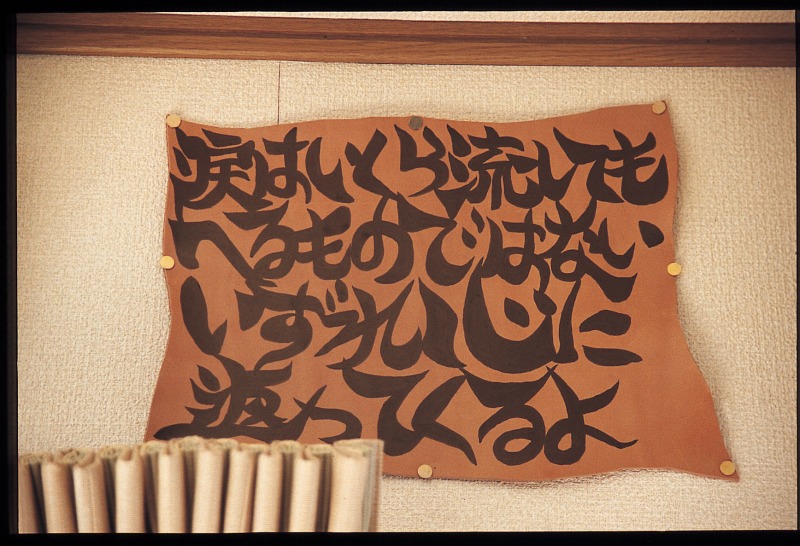 涙はいくら流しても
へるものではない
いずれ心に
返ってくるよ